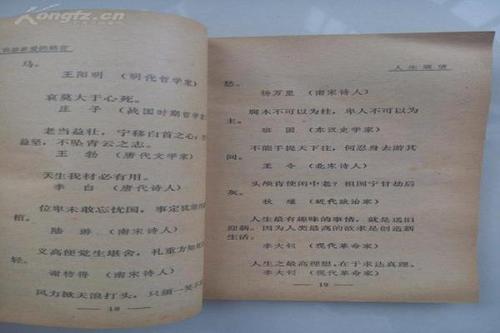 Kongfz.com
喜爱的格言
马。
王阳明 (明代哲学家)
哀莫大于心死。
庄 子 (战国时期哲学
老当益壮，宁移白首之心；
益坚，不坠青云之志。
王 勃 (唐代文学家)
天生我材必有用。
李 白 (唐代诗人)
位卑未敢忘忧国，事定犹须
棺。
陆 游 (南宋诗人)
义高便觉生堪舍，礼重方知
轻。
谢枋得 (南宋诗人)
风力掀天浪打头，只须一笑不
— 18 —
人生展望
愁。
杨万里 (南宋诗人)
腐木不可以为柱，卑人不可以为
主。
班 固 (东汉史学家)
不能手提天下往，何忍身去游其
间。
王 令 (北宋诗人)
头颅肯使闲中老？祖国宁甘劫后
灰。
秋 瑾 (近代政治家)
人生最有趣味的事情，就是送旧
迎新。因为人类最高的欲求是创造新
生活。
李大钊 (现代革命家)
人生之最高理想，在于求达真理。
李大钊 (现代革命家)
— 19 —